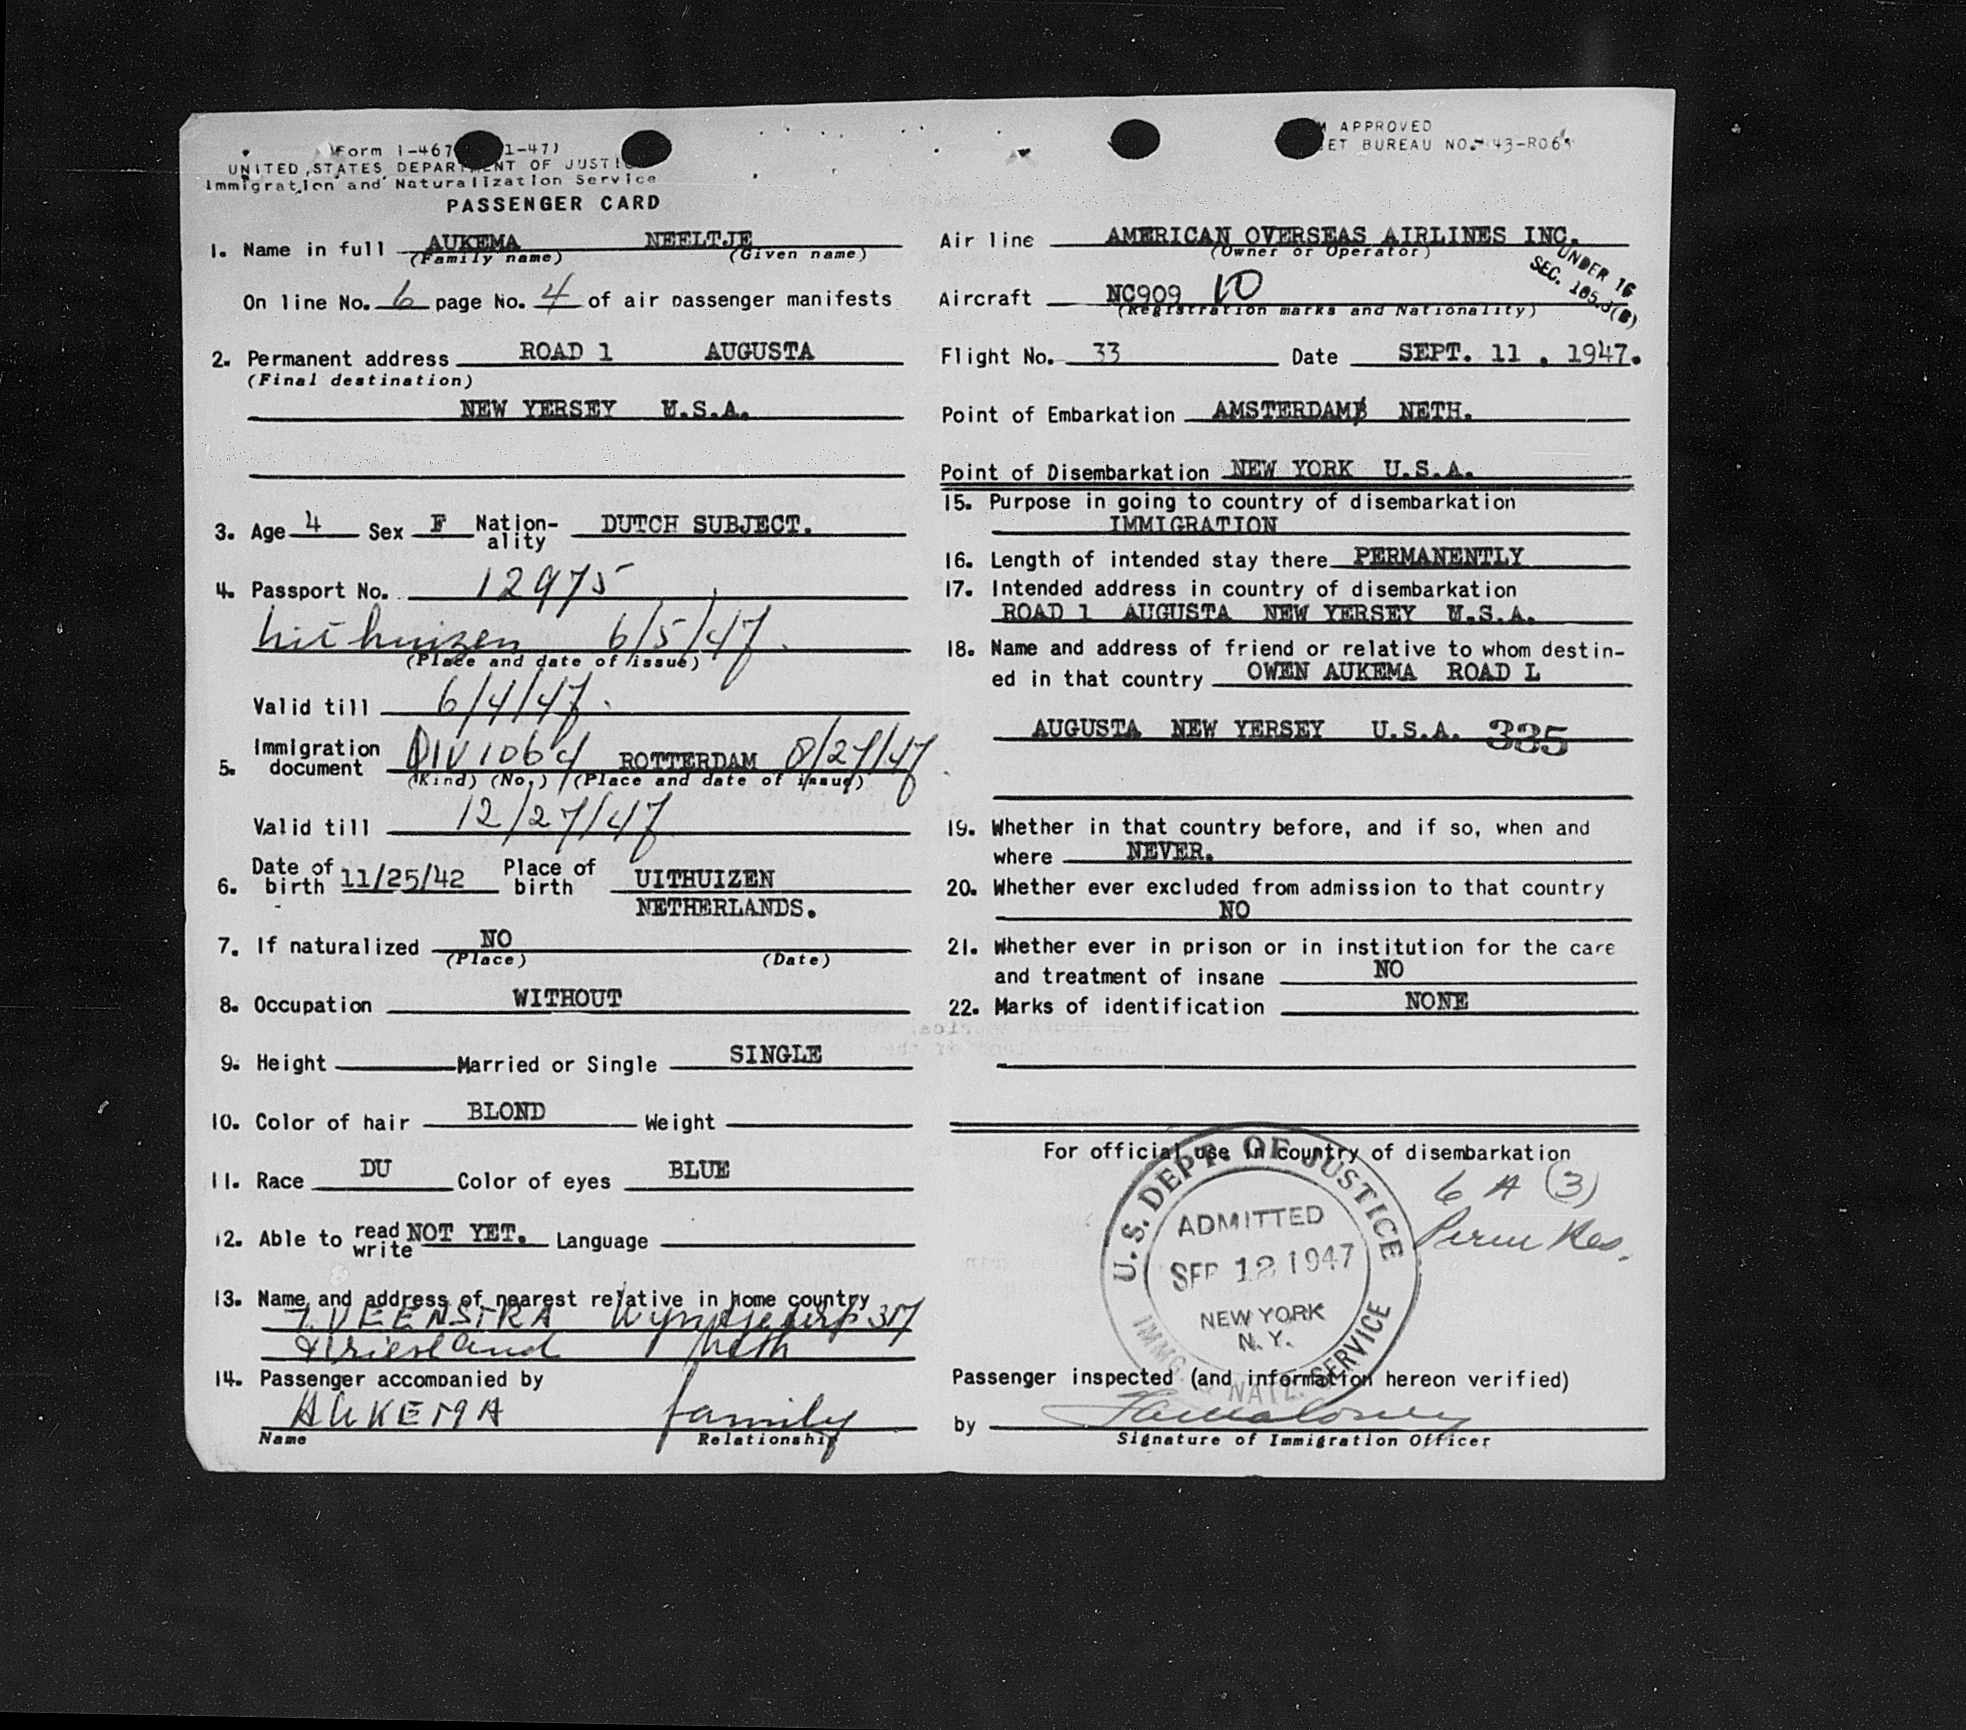 (Form I-467 1-47)
UNITED STATES DEPARTMENT OF JUSTI
Immigration and Naturalization Service
PASSENGER CARD
1. Name in full AUKEMA NEELTJE
(Family name) (Given name)
On line No. 6 page No. 4 of air passenger manifests
2. Permanent address ROAD 1 AUGUSTA
(Final destination)
NEW YERSEY U.S.A.
3. Age 4 Sex F Nation-ality DUTCH SUBJECT.
4. Passport No. 12975
Uithuizen 6/5/47.
(Place and date of issue)
Valid till 6/4/47.
5. Immigration document IV 1064 ROTTERDAM 8/27/47
(Kind) (No.) (Place and date of issue)
Valid till 12/27/47
6. Date of birth 11/25/42 Place of birth UITHUIZEN
NETHERLANDS.
7. If naturalized NO
(Place) (Date)
8. Occupation WITHOUT
9. Height Married or Single SINGLE
10. Color of hair BLOND Weight
11. Race DU Color of eyes BLUE
12. Able to read write NOT YET. Language
13. Name and address of nearest relative in home country
VEENSTRA 317
Friesland Neth
14. Passenger accompanied by
AUKEMA family
Name Relationship
M APPROVED
ET BUREAU NO. 43-R06
Air line AMERICAN OVERSEAS AIRLINES INC.
(Owner or Operator)
UNDER 16
SEC. 165.3(B)
Aircraft NC909 10
(Registration marks and Nationality)
Flight No. 33 Date SEPT. 11 , 1947.
Point of Embarkation AMSTERDAM NETH.
Point of Disembarkation NEW YORK U.S.A.
15. Purpose in going to country of disembarkation
IMMIGRATION
16. Length of intended stay there PERMANENTLY
17. Intended address in country of disembarkation
ROAD 1 AUGUSTA NEW YERSEY U.S.A.
18. Name and address of friend or relative to whom destin-
ed in that country OWEN AUKEMA ROAD L
AUGUSTA NEW YERSEY U.S.A. 335
19. Whether in that country before, and if so, when and
where NEVER.
20. Whether ever excluded from admission to that country
NO
21. Whether ever in prison or in institution for the care
and treatment of insane NO
22. Marks of identification NONE
For official use in country of disembarkation
6 A (3)
Perm Res.
U.S. DEPT. OF JUSTICE
ADMITTED
SEP 12 1947
NEW YORK
N.Y.
IMMG. & NATZ. SERVICE
Passenger inspected (and information hereon verified)
by
Signature of Immigration Officer